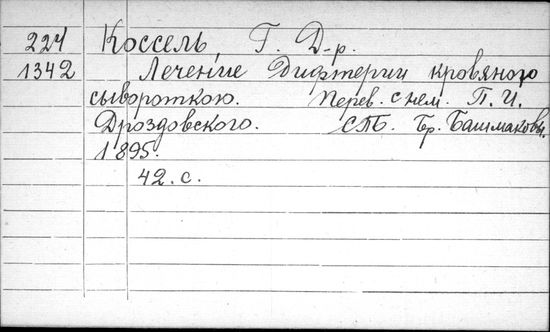 224 Коссель, Г. Д-р.
1342 Лечение Дифтерии кровяною
сывороткою. Перев. с нем. П. И.
Дроздовского. СПБ. Бр. Башмаковы.
1895.
42. с.